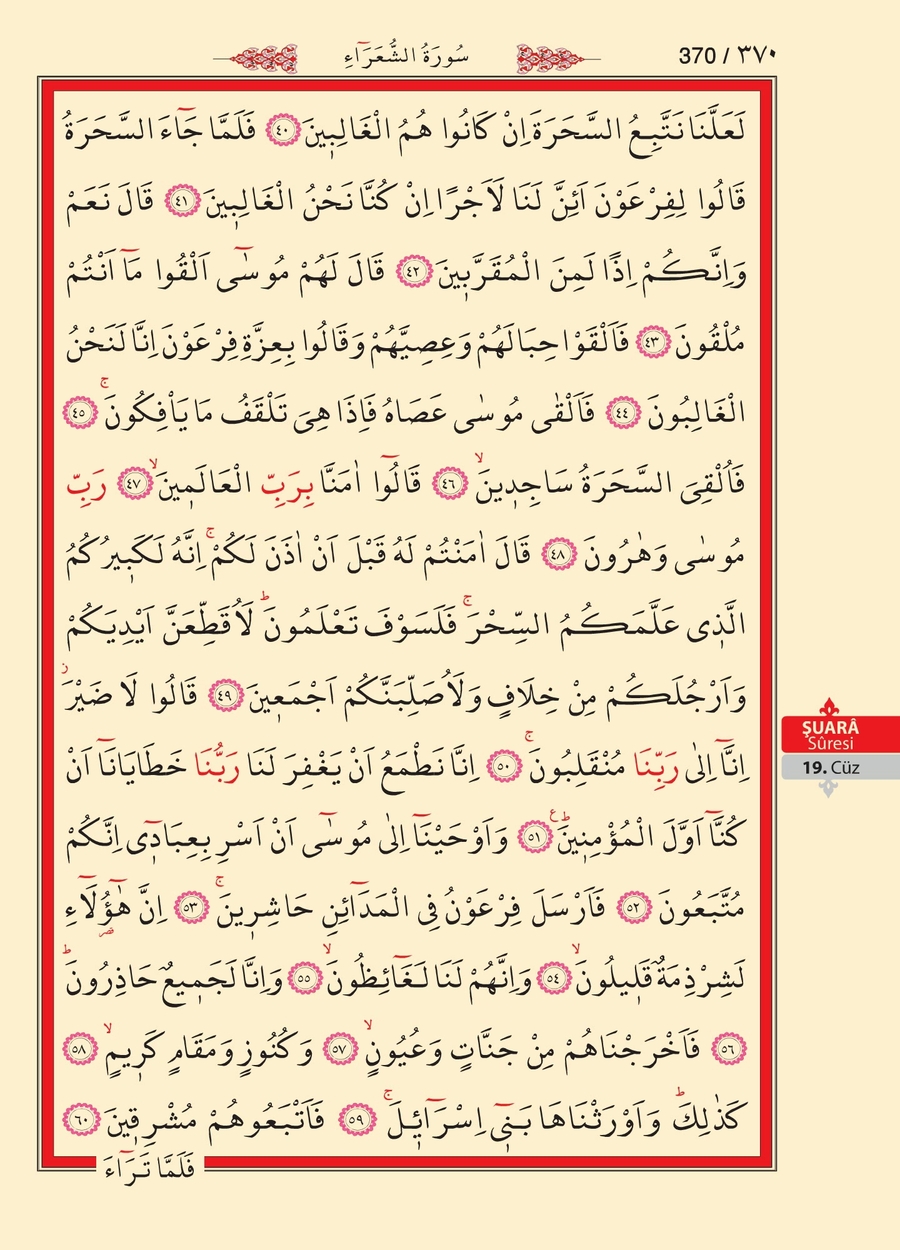 سُورَةُ الشُّعَرَٓاءِ
370 / ٣٧٠
لَعَلَّنَا نَتَّبِعُ السَّحَرَةَ اِنْ كَانُوا هُمُ الْغَالِب۪ينَ ﴿٤٠﴾ فَلَمَّا جَٓاءَ السَّحَرَةُ
قَالُوا لِفِرْعَوْنَ اَئِنَّ لَنَا لَاَجْرًا اِنْ كُنَّا نَحْنُ الْغَالِب۪ينَ ﴿٤١﴾ قَالَ نَعَمْ
وَاِنَّكُمْ اِذًا لَمِنَ الْمُقَرَّب۪ينَ ﴿٤٢﴾ قَالَ لَهُمْ مُوسٰٓى اَلْقُوا مَٓا اَنْتُمْ
مُلْقُونَ ﴿٤٣﴾ فَاَلْقَوْا حِبَالَهُمْ وَعِصِيَّهُمْ وَقَالُوا بِعِزَّةِ فِرْعَوْنَ اِنَّا لَنَحْنُ
الْغَالِبُونَ ﴿٤٤﴾ فَاَلْقٰى مُوسٰى عَصَاهُ فَاِذَا هِىَ تَلْقَفُ مَا يَاْفِكُونَۚ ﴿٤٥﴾
فَاُلْقِىَ السَّحَرَةُ سَاجِد۪ينَۙ ﴿٤٦﴾ قَالُٓوا اٰمَنَّا بِرَبِّ الْعَالَم۪ينَۙ ﴿٤٧﴾ رَبِّ
مُوسٰى وَهٰرُونَ ﴿٤٨﴾ قَالَ اٰمَنْتُمْ لَهُ قَبْلَ اَنْ اٰذَنَ لَكُمْۚ اِنَّهُ لَكَب۪يرُكُمُ
الَّذ۪ى عَلَّمَكُمُ السِّحْرَۚ فَلَسَوْفَ تَعْلَمُونَۜ لَاُقَطِّعَنَّ اَيْدِيَكُمْ
وَاَرْجُلَكُمْ مِنْ خِلَافٍ وَلَاُصَلِّبَنَّكُمْ اَجْمَع۪ينَ ﴿٤٩﴾ قَالُوا لَا ضَيْرَۘ
اِنَّٓا اِلٰى رَبِّنَا مُنْقَلِبُونَۚ ﴿٥٠﴾ اِنَّا نَطْمَعُ اَنْ يَغْفِرَ لَنَا رَبُّنَا خَطَايَانَٓا اَنْ
كُنَّٓا اَوَّلَ الْمُؤْمِن۪ينَۜ ع ﴿٥١﴾ وَاَوْحَيْنَٓا اِلٰى مُوسٰٓى اَنْ اَسْرِ بِعِبَاد۪ٓى اِنَّكُمْ
مُتَّبَعُونَ ﴿٥٢﴾ فَاَرْسَلَ فِرْعَوْنُ فِى الْمَدَٓائِنِ حَاشِر۪ينَۚ ﴿٥٣﴾ اِنَّ هٰٓؤُ۬لَٓاءِ
لَشِرْذِمَةٌ قَل۪يلُونَۙ ﴿٥٤﴾ وَاِنَّهُمْ لَنَا لَغَٓائِظُونَۙ ﴿٥٥﴾ وَاِنَّا لَجَم۪يعٌ حَاذِرُونَۜ
﴿٥٦﴾ فَاَخْرَجْنَاهُمْ مِنْ جَنَّاتٍ وَعُيُونٍۙ ﴿٥٧﴾ وَكُنُوزٍ وَمَقَامٍ كَر۪يمٍۙ ﴿٥٨﴾
كَذٰلِكَۜ وَاَوْرَثْنَاهَا بَن۪ٓى اِسْرَٓائ۪لَۚ ﴿٥٩﴾ فَاَتْبَعُوهُمْ مُشْرِق۪ينَ ﴿٦٠﴾
فَلَمَّا تَرَٓاءَ
ŞUARÂ
Sûresi
19. Cüz